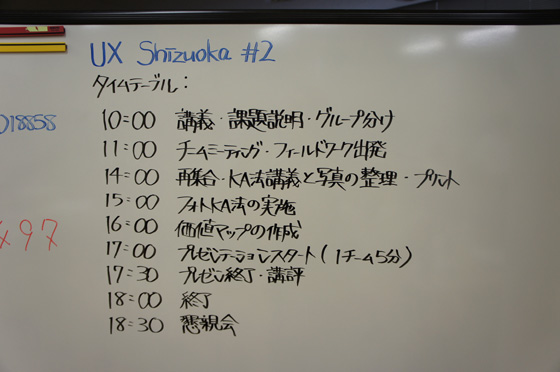 UX Shizuoka #2
タイムテーブル:
10:00 講義・課題説明・グループ分け
11:00 チームミーティング・フィールドワーク出発
14:00 再集合・KA法講義と写真の整理・プリント
15:00 フォトKA法の実施
16:00 価値マップの作成
17:00 プレゼンテーションスタート(1チーム5分)
17:30 プレゼン終了・講評
18:00 終了
18:30 懇親会
018858
x97